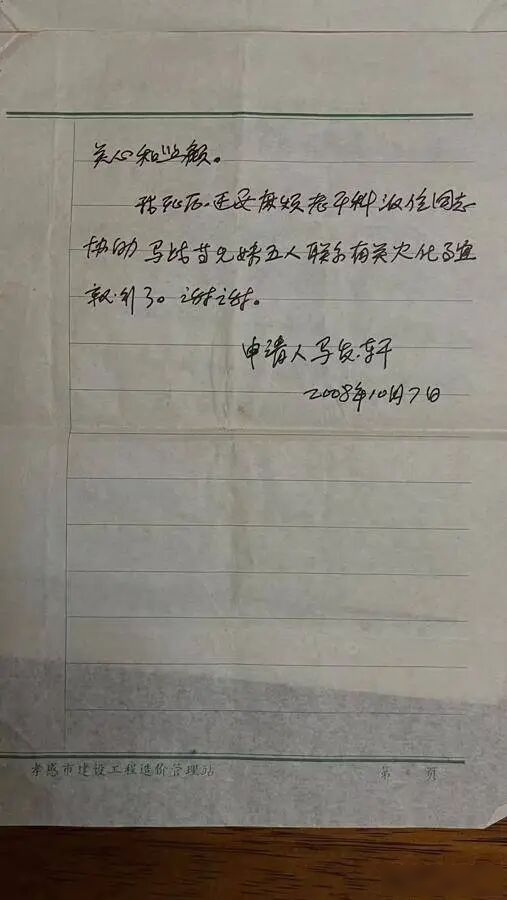 关心和照顾。
我死后，还要麻烦老干科派位同志
协助马结昔兄妹五人联系有关火化事宜
就行了。谢谢。
申请人马发轩
2008年10月7日
孝感市建设工程造价管理站
第 页